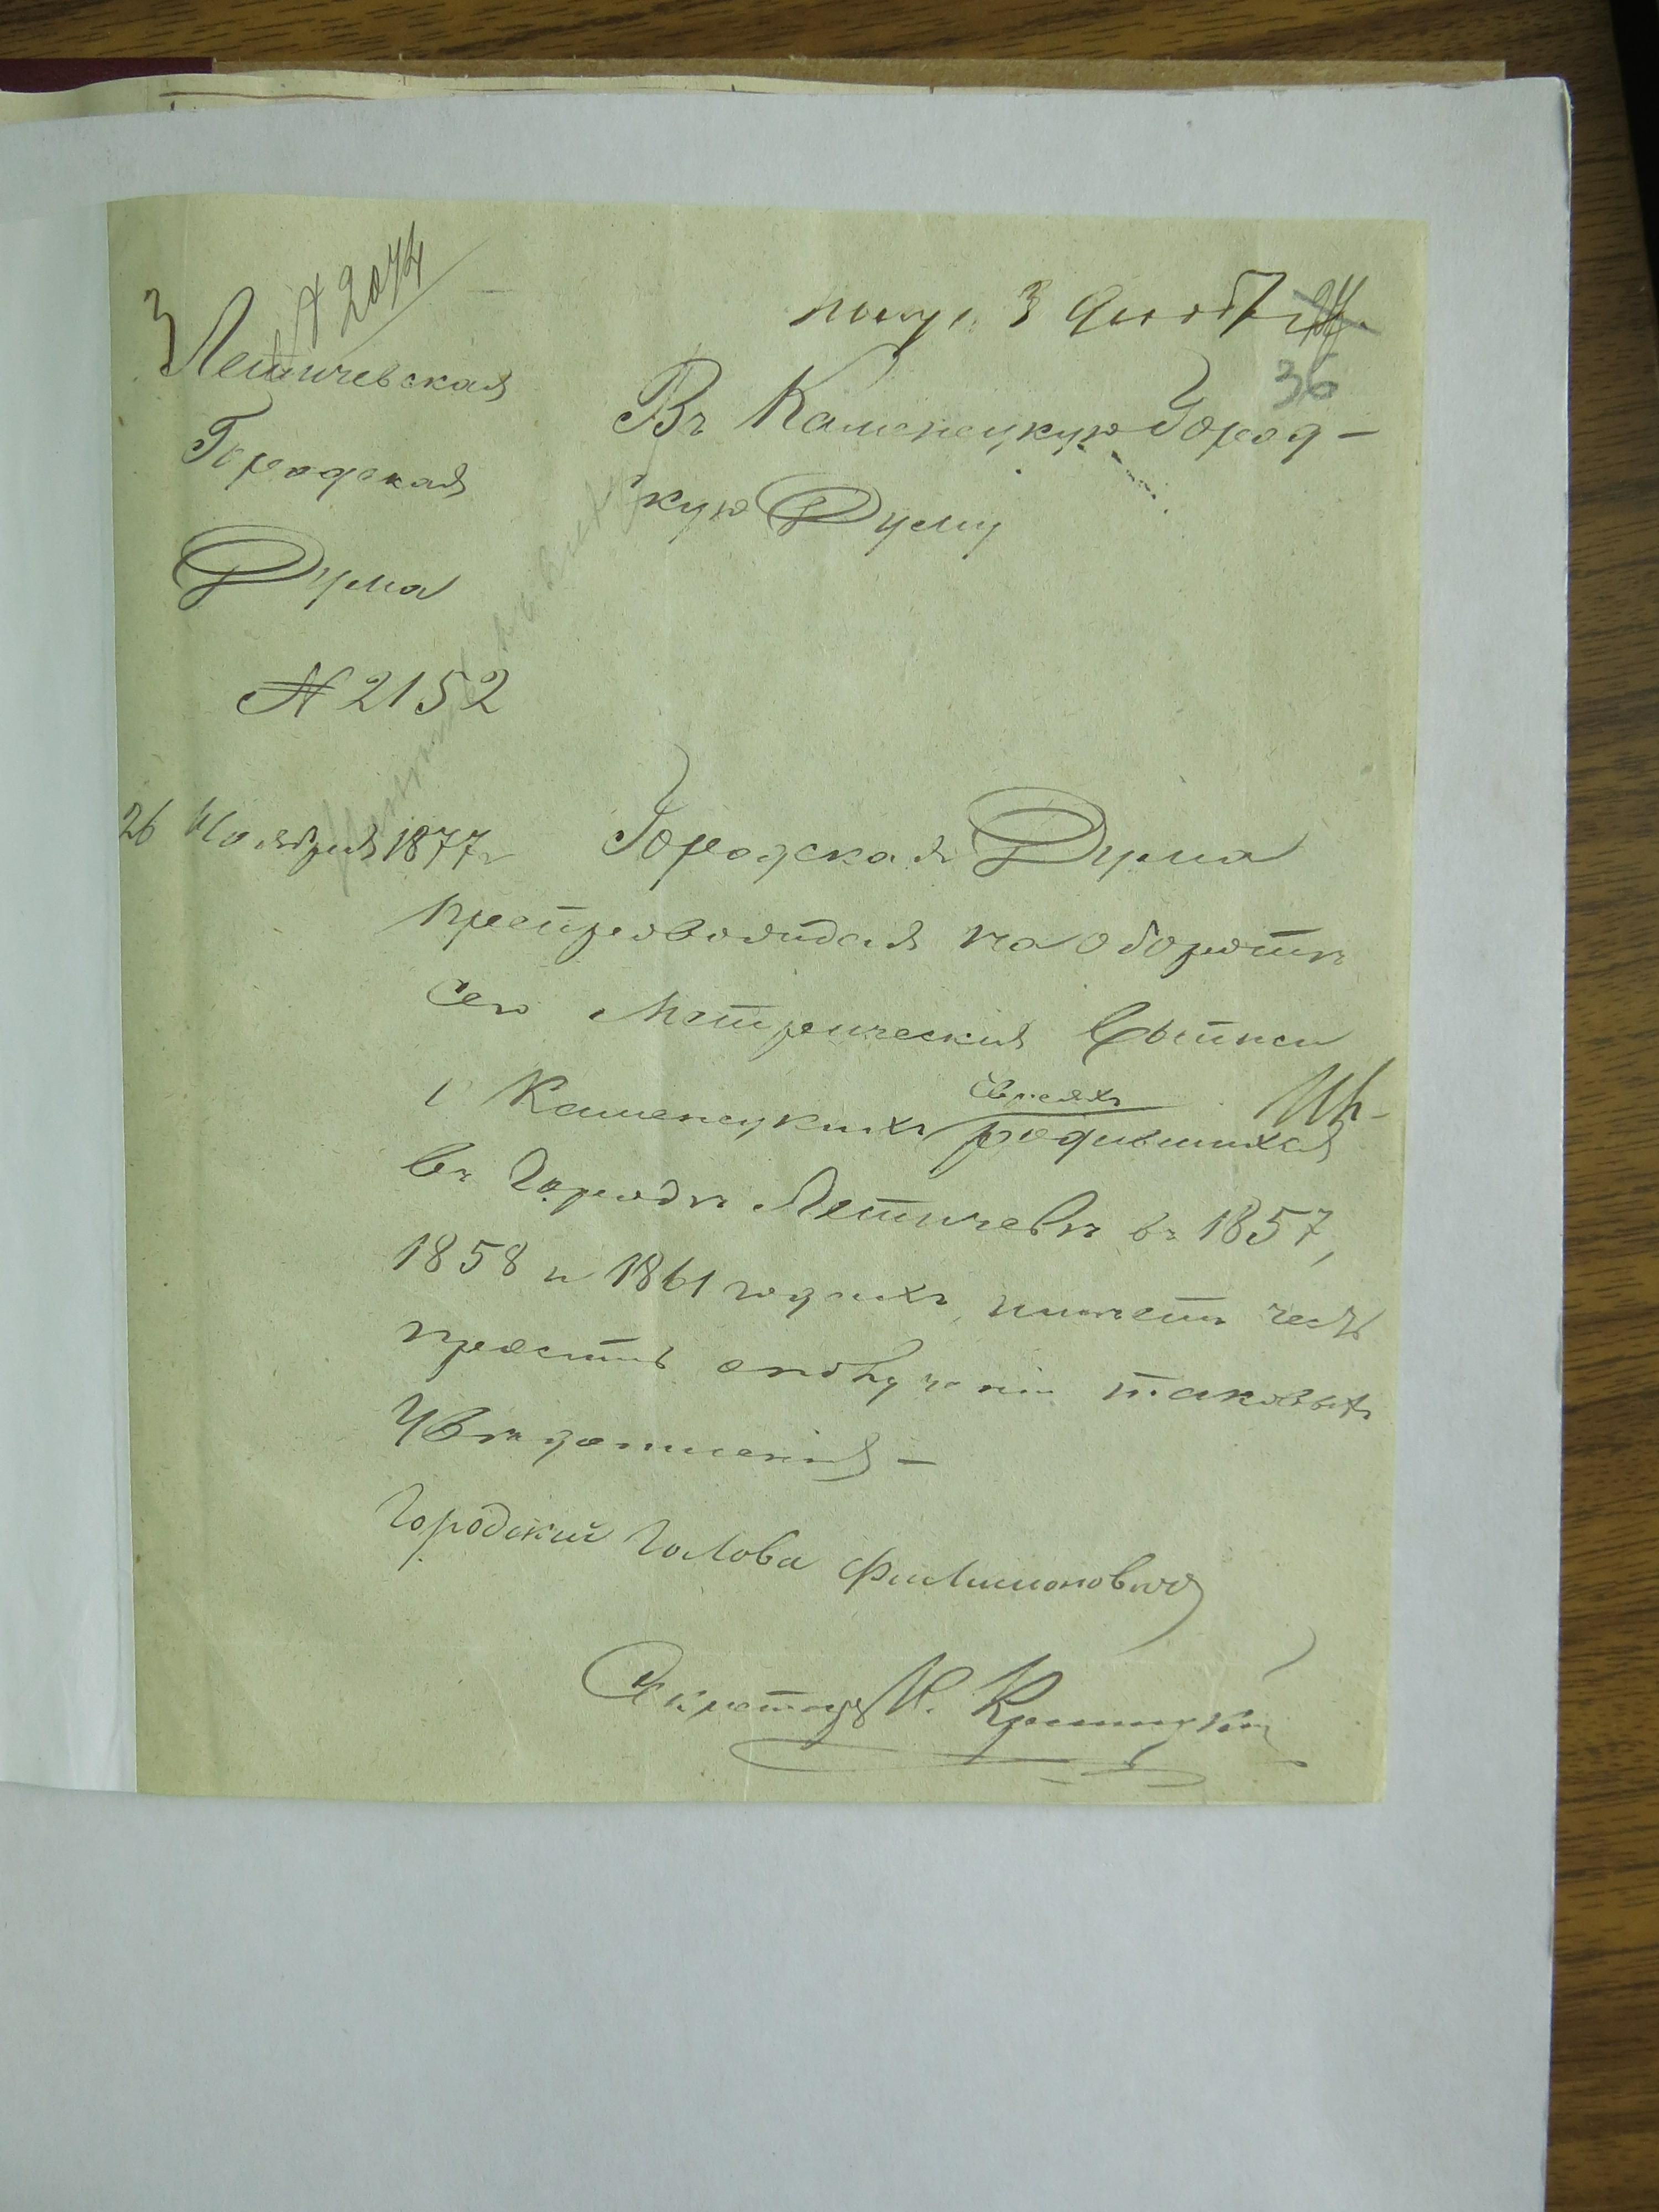 № 2074
получ. 3 Декаб
36
Летичевская
Городская
Дума
№ 2152
26 Ноября 1877 г
Въ Каменецкую Город-
скую Думу
Городская Дума
препровождая на оборотѣ
сего Метрическия выписи
о Каменецкихъ евреяхъ родившихся
въ Городѣ Летичевѣ въ 1857,
1858 и 1861 годахъ, имѣетъ честь
просить о получении таковыхъ
Увѣдомления —
Городский Голова Филимоновичъ
Секретарь